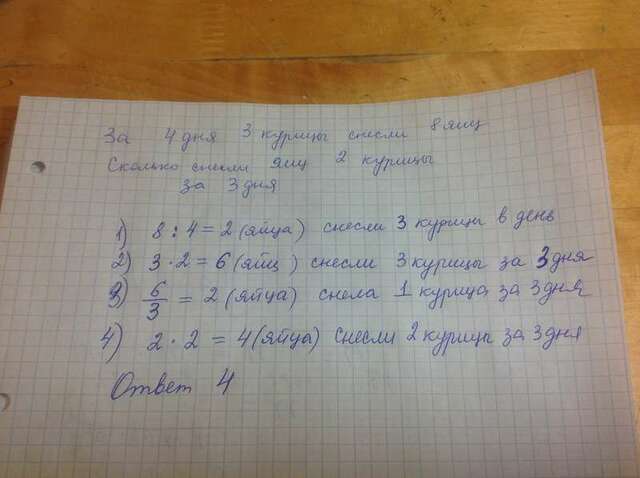 За 4 дня 3 курицы снесли 8 яиц
Сколько снесли яиц 2 курицы
за 3 дня
1) 8 : 4 = 2 (яйца) снесли 3 курицы в день
2) 3 · 2 = 6 (яиц) снесли 3 курицы за 3 дня
3) 6/3 = 2 (яйца) снела 1 курица за 3 дня
4) 2 · 2 = 4 (яйца) снесли 2 курицы за 3 дня
Ответ 4